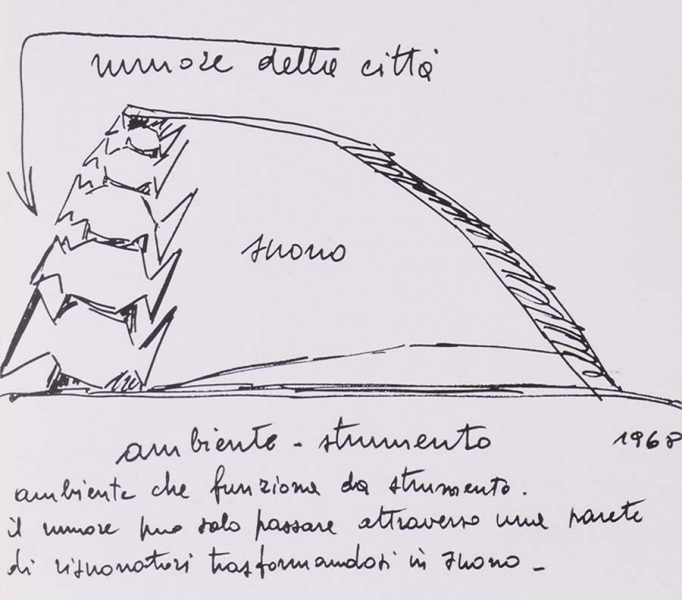 rumore della città
suono
ambiente - strumento
1968
ambiente che funziona da strumento.
il rumore può solo passare attraverso una parete
di risuonatori trasformandosi in suono -